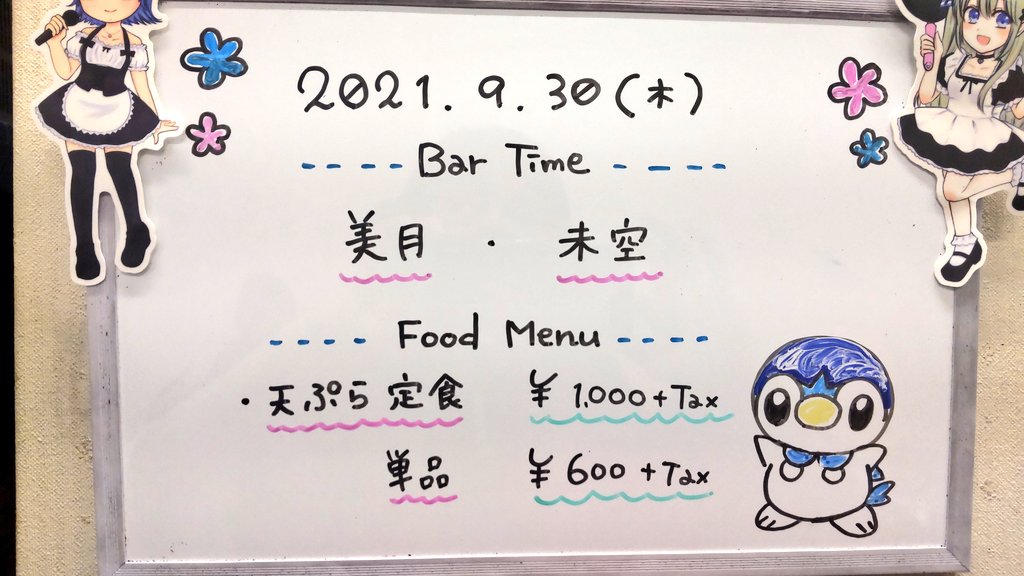 2021. 9. 30 (木)
---- Bar Time ----
美月 ・ 未空
---- Food Menu ----
・天ぷら定食 ¥1.000+Tax
単品 ¥600+Tax